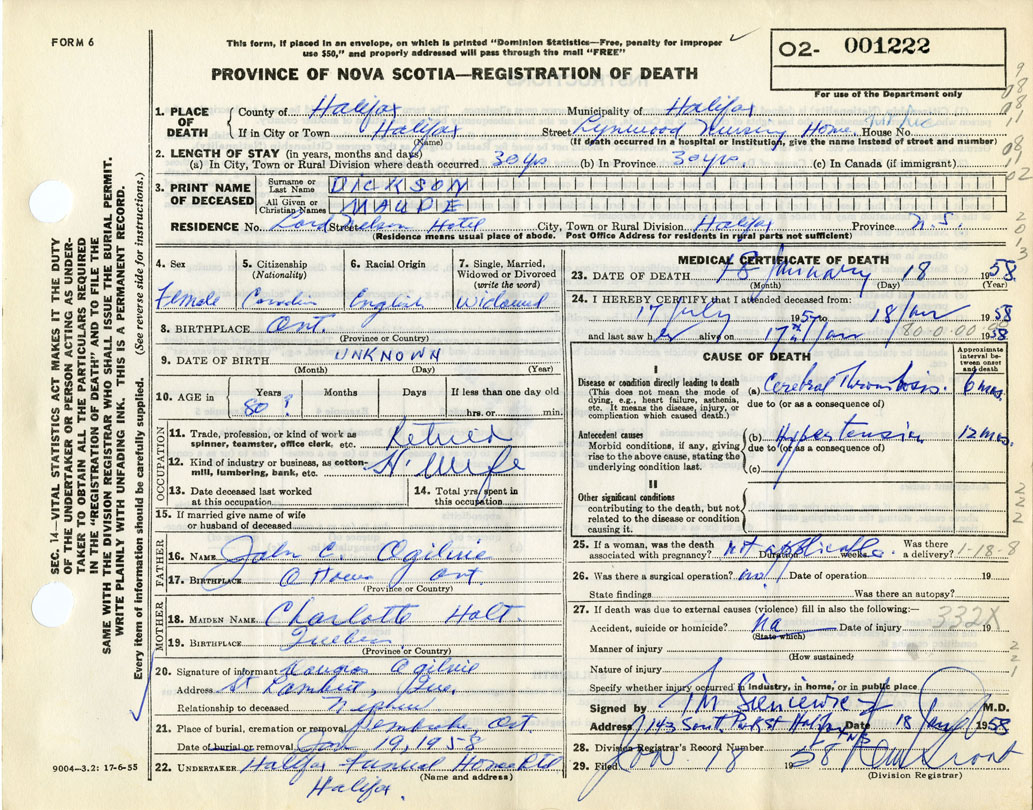 FORM 6
This form, if placed in an envelope, on which is printed "Dominion Statistics—Free, penalty for improper
use $50," and properly addressed will pass through the mail "FREE"
PROVINCE OF NOVA SCOTIA—REGISTRATION OF DEATH
O2- 001222
For use of the Department only
1. PLACE OF DEATH
County of Halifax Municipality of Halifax
If in City or Town Halifax Street Lynwood Nursing Home House No.
(Name) (If death occurred in a hospital or institution, give the name instead of street and number)
2. LENGTH OF STAY (in years, months and days)
(a) In City, Town or Rural Division where death occurred 30 yrs (b) In Province 30 yrs. (c) In Canada (if immigrant)
3. PRINT NAME OF DECEASED
Surname or Last Name DICKSON
All Given or Christian Names MAUDE
RESIDENCE No. Lord Street Nelson Hotel City, Town or Rural Division Halifax Province N.S.
(Residence means usual place of abode. Post Office Address for residents in rural parts not sufficient)
4. Sex
Female
5. Citizenship (Nationality)
6. Racial Origin
English
7. Single, Married, Widowed or Divorced (write the word)
Widowed
8. BIRTHPLACE Ont.
(Province or Country)
9. DATE OF BIRTH UNKNOWN
(Month) (Day) (Year)
10. AGE in
Years Months Days If less than one day old
80 ? hrs. or min.
OCCUPATION
11. Trade, profession, or kind of work as spinner, teamster, office clerk, etc. Retired
12. Kind of industry or business, as cotton-mill, lumbering, bank, etc. H. Wife
13. Date deceased last worked at this occupation
14. Total yrs. spent in this occupation
15. If married give name of wife or husband of deceased
FATHER
16. NAME John C. Ogilvie
17. BIRTHPLACE Ottawa Ont.
(Province or Country)
MOTHER
18. MAIDEN NAME Charlotte Holt.
19. BIRTHPLACE Quebec
(Province or Country)
20. Signature of informant Douglas Ogilvie
Address St Lambert, Que.
Relationship to deceased Nephew
21. Place of burial, cremation or removal Pembroke Ont
Date of burial or removal Jan 19, 1958
22. UNDERTAKER Halifax Funeral Home Ltd
(Name and address)
Halifax.
MEDICAL CERTIFICATE OF DEATH
23. DATE OF DEATH January 18 1958
(Month) (Day) (Year)
24. I HEREBY CERTIFY that I attended deceased from:
17 July 1957 to 18 Jan 1958
and last saw her alive on 17th Jan 1958
80-0-00-
CAUSE OF DEATH
Approximate interval between onset and death
I
Disease or condition directly leading to death (a) Cerebral Thrombosis. 6 mos.
(This does not mean the mode of dying, e.g., heart failure, asthenia, etc. It means the disease, injury, or complication which caused death.)
due to (or as a consequence of)
Antecedent causes (b) Hypertension 12 mos.
Morbid conditions, if any, giving rise to the above cause, stating the underlying condition last.
due to (or as a consequence of)
(c)
II
Other significant conditions
contributing to the death, but not related to the disease or condition causing it.
25. If a woman, was the death associated with pregnancy? not applicable. Duration weeks. Was there a delivery? 1-18-8
26. Was there a surgical operation? no Date of operation 19
State findings Was there an autopsy?
27. If death was due to external causes (violence) fill in also the following:—
332X
Accident, suicide or homicide? na Date of injury 19
(State which)
Manner of injury
(How sustained)
Nature of injury
Specify whether injury occurred in industry, in home, or in public place
Signed by M.D.
Address 143 South Park St Halifax NS Date 18 Jan 1958
28. Division Registrar's Record Number
29. Filed Jan. 18 1958
(Division Registrar)
SEC. 14—VITAL STATISTICS ACT MAKES IT THE DUTY
OF THE UNDERTAKER OR PERSON ACTING AS UNDER-
TAKER TO OBTAIN ALL THE PARTICULARS REQUIRED
IN THE "REGISTRATION OF DEATH" AND TO FILE THE
SAME WITH THE DIVISION REGISTRAR WHO SHALL ISSUE THE BURIAL PERMIT.
WRITE PLAINLY WITH UNFADING INK. THIS IS A PERMANENT RECORD.
Every item of information should be carefully supplied. (See reverse side for instructions.)
9004—3.2: 17-6-55